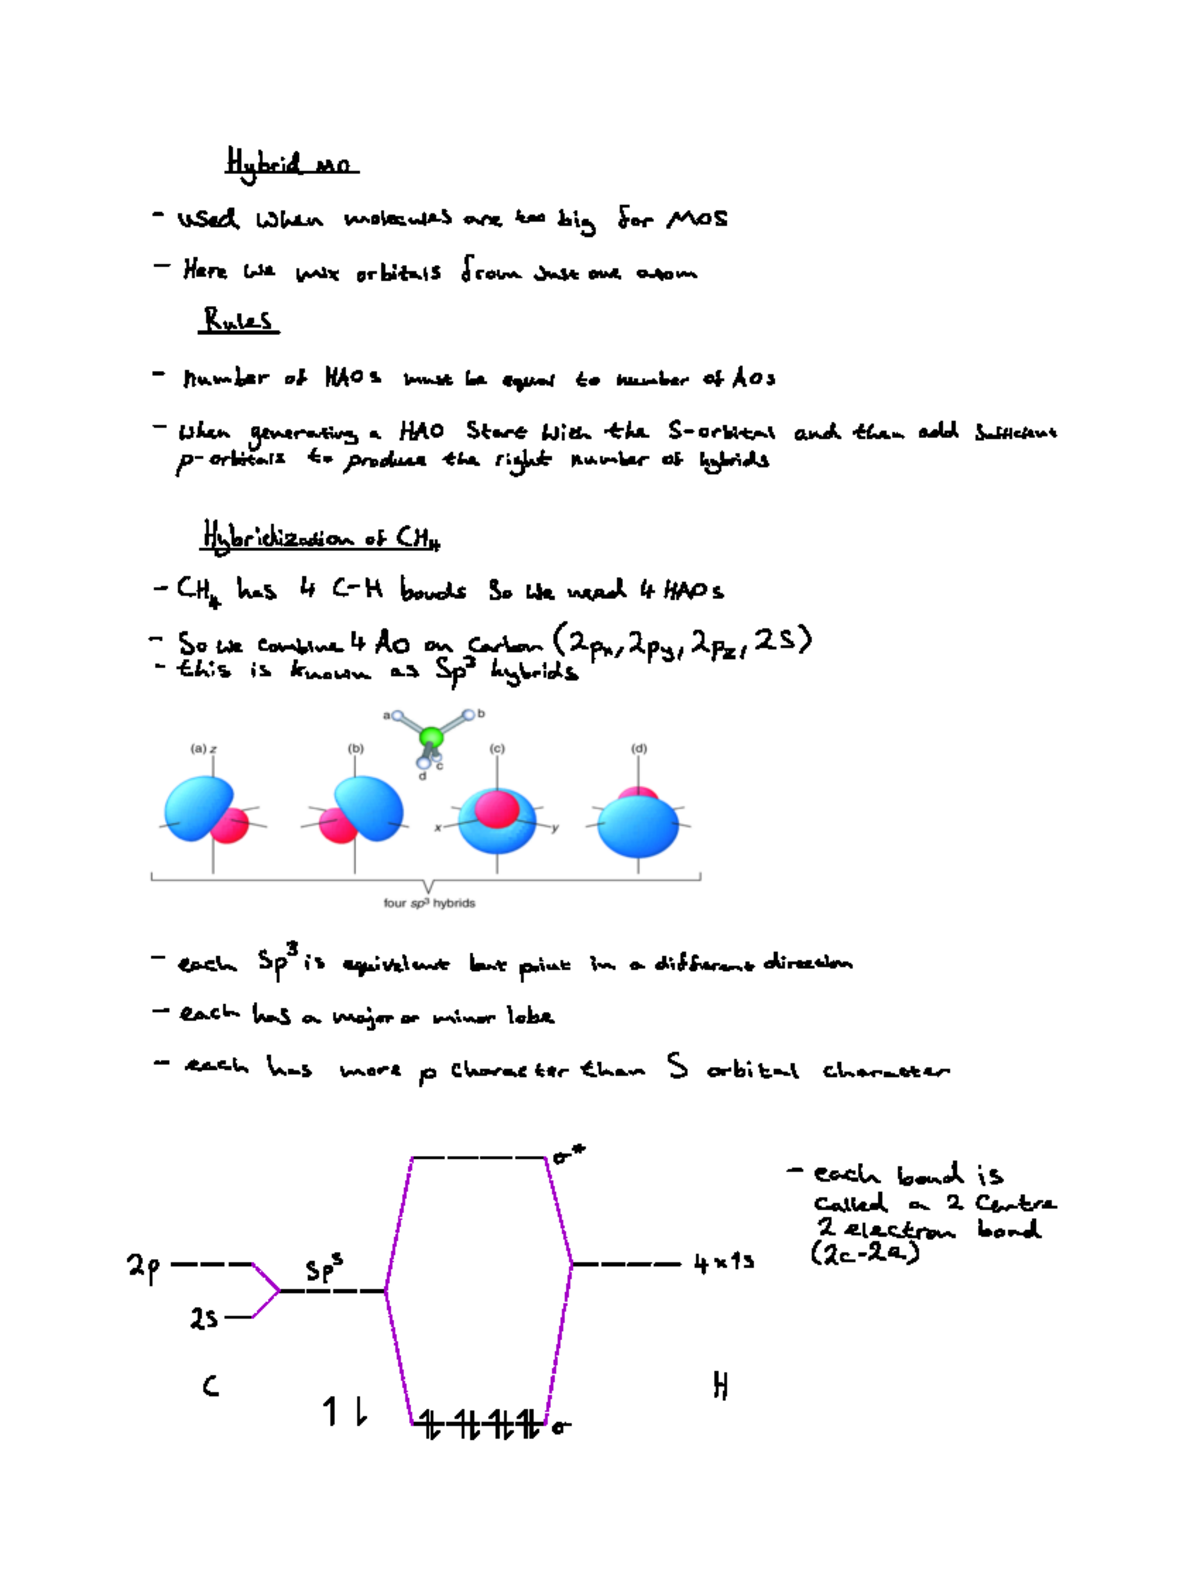 Hybrid MO
- used when molecules are too big for MOS
- Here we mix orbitals from just one atom
Rules
- number of HAOs must be equal to number of AOs
- when generating a HAO Start with the S-orbital and then add sufficient
p-orbitals to produce the right number of hybrids
Hybridization of CH₄
- CH₄ has 4 C-H bonds So we need 4 HAOs
- So we combine 4 AO on Carbon (2pₓ, 2py, 2pz, 2S)
- this is known as Sp³ hybrids
a b
(a) z (b) (c) (d)
d c
x y
four sp³ hybrids
- each Sp³ is equivelent but point in a different direction
- each has a major or minor lobe
- each has more p character than S orbital character
σ*
- each bond is
called a 2 Centre
2 electron bond
(2c-2e)
2p Sp³ 4x1s
2s
C H
1 ⇂ σ